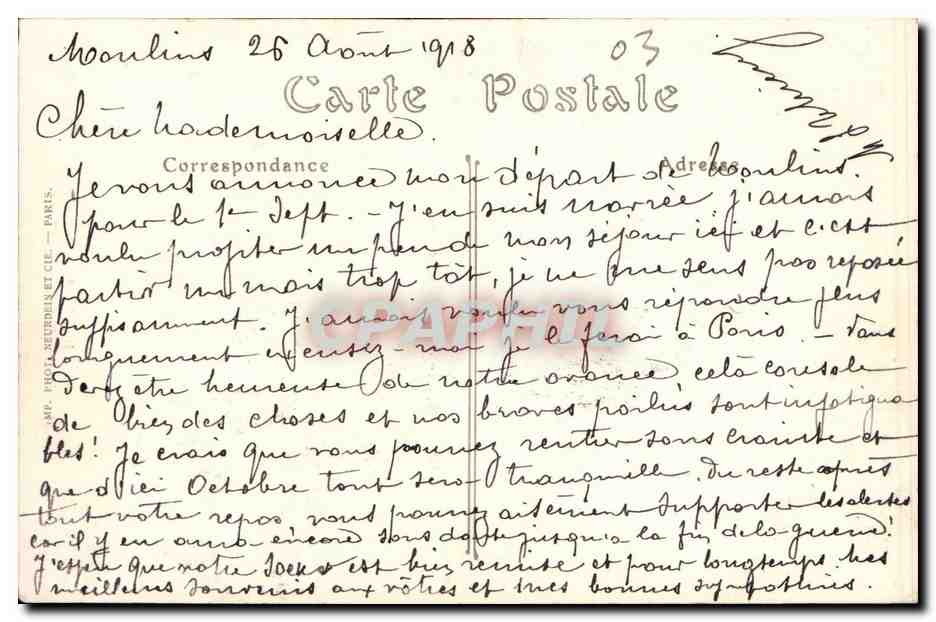 Moulins 26 Août 1918
03
Carte Postale
Chère Mademoiselle.
Correspondance
Adresse
Je vous annonce mon départ de Moulins.
pour le 1er Sept. - J'en suis navrée, j'aurais
voulu profiter un peu de mon séjour ici et c'est
partir un mois trop tôt, je ne me sens pas reposée
suffisamment. J'aurait voulu vous répondre plus
longuement excusez-moi je le ferai à Paris - Vous
devez être heureuse de notre avance, celà console
de bien des choses et nos braves poilus sont infatigua
bles! Je crois que vous pourrez rentrer sans crainte et
que d'ici Octobre tout sera tranquille, du reste après
tout votre repos, vous pourrez aisément supporter les alertes
car il y en aura encore sans doute jusqu'à la fin de la guerre!
J'espère que votre est bien remise et pour longtemps. Mes
meilleurs souvenirs aux vôtres et mes bonnes sympathies.
IMP. PHOT. NEURDEIN ET CIE. — PARIS.
CPAPHIL